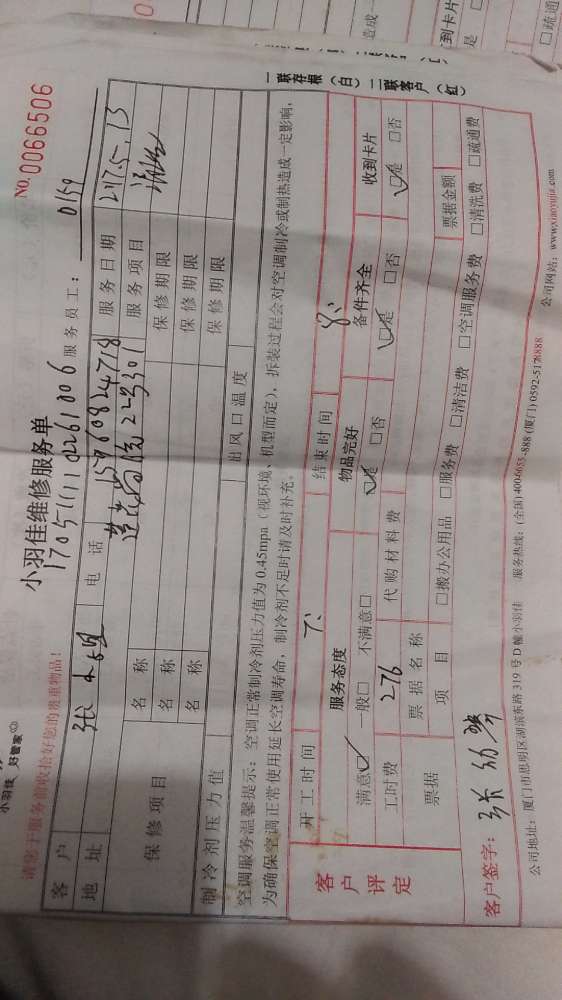 小羽佳 好管家
请您于服务前收拾好您的贵重物品!
小羽佳维修服务单
NO.0066506
170511110261006 服务员工: 0159
客户 电话 15960824718 服务日期 217.5.13
地址 莲花 223301 服务项目
保修项目 名称 保修期限
名称 保修期限
名称 保修期限
制冷剂压力值 出风口温度
空调服务温馨提示:空调正常制冷剂压力值为0.45mpa(视环境、机型而定),拆装过程会对空调制冷或制热造成一定影响,
为确保空调正常使用延长空调寿命,制冷剂不足时请及时补充。
一联存根(白) 二联客户(红)
开工时间 7: 结束时间 8:
客户评定 服务态度 物品完好 备件齐全 收到卡片
满意☑ 一般□ 不满意□ ☑是 □否 ☑是 □否 ☑是 □否
工时费 276 代购材料费
票据 票据名称 票据金额
项目 □搬办公用品 □服务费 □清洁费 □空调服务费 □清洗费 □疏通费
客户签字:
公司地址:厦门市思明区湖滨东路319号D幢小羽佳 服务热线:(全国)4004655-888 (厦门)0592-5178888 公司网站:www.xiaoyujia.com
收到卡片
是
□疏通